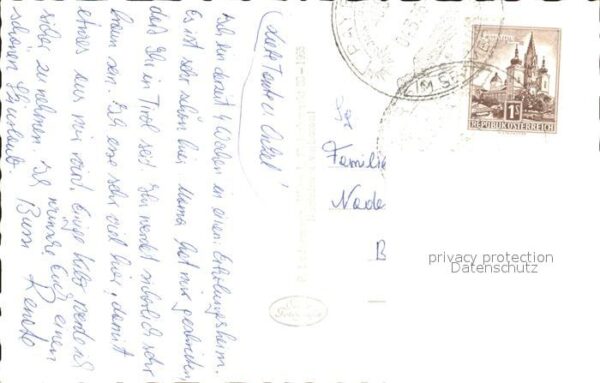 Liebe Tante u. Onkel!
Ich bin derzeit 4 Wochen in einem Erholungsheim.
Es ist sehr schön hier. Mama hat mir geschrieben
daß Ihr in Tirol seid. Ihr werdet sicherlich sehr
braun sein. Ich esse sehr viel hier, damit
etwas aus mir wird. Einige Kilo werde ich
sicher zu nehmen. Ich wünsche Euch einen
schönen Urlaub Bussi Renate
IM SE
REPUBLIK ÖSTERREICH
Familie
Nade
B
privacy protection
Datenschutz